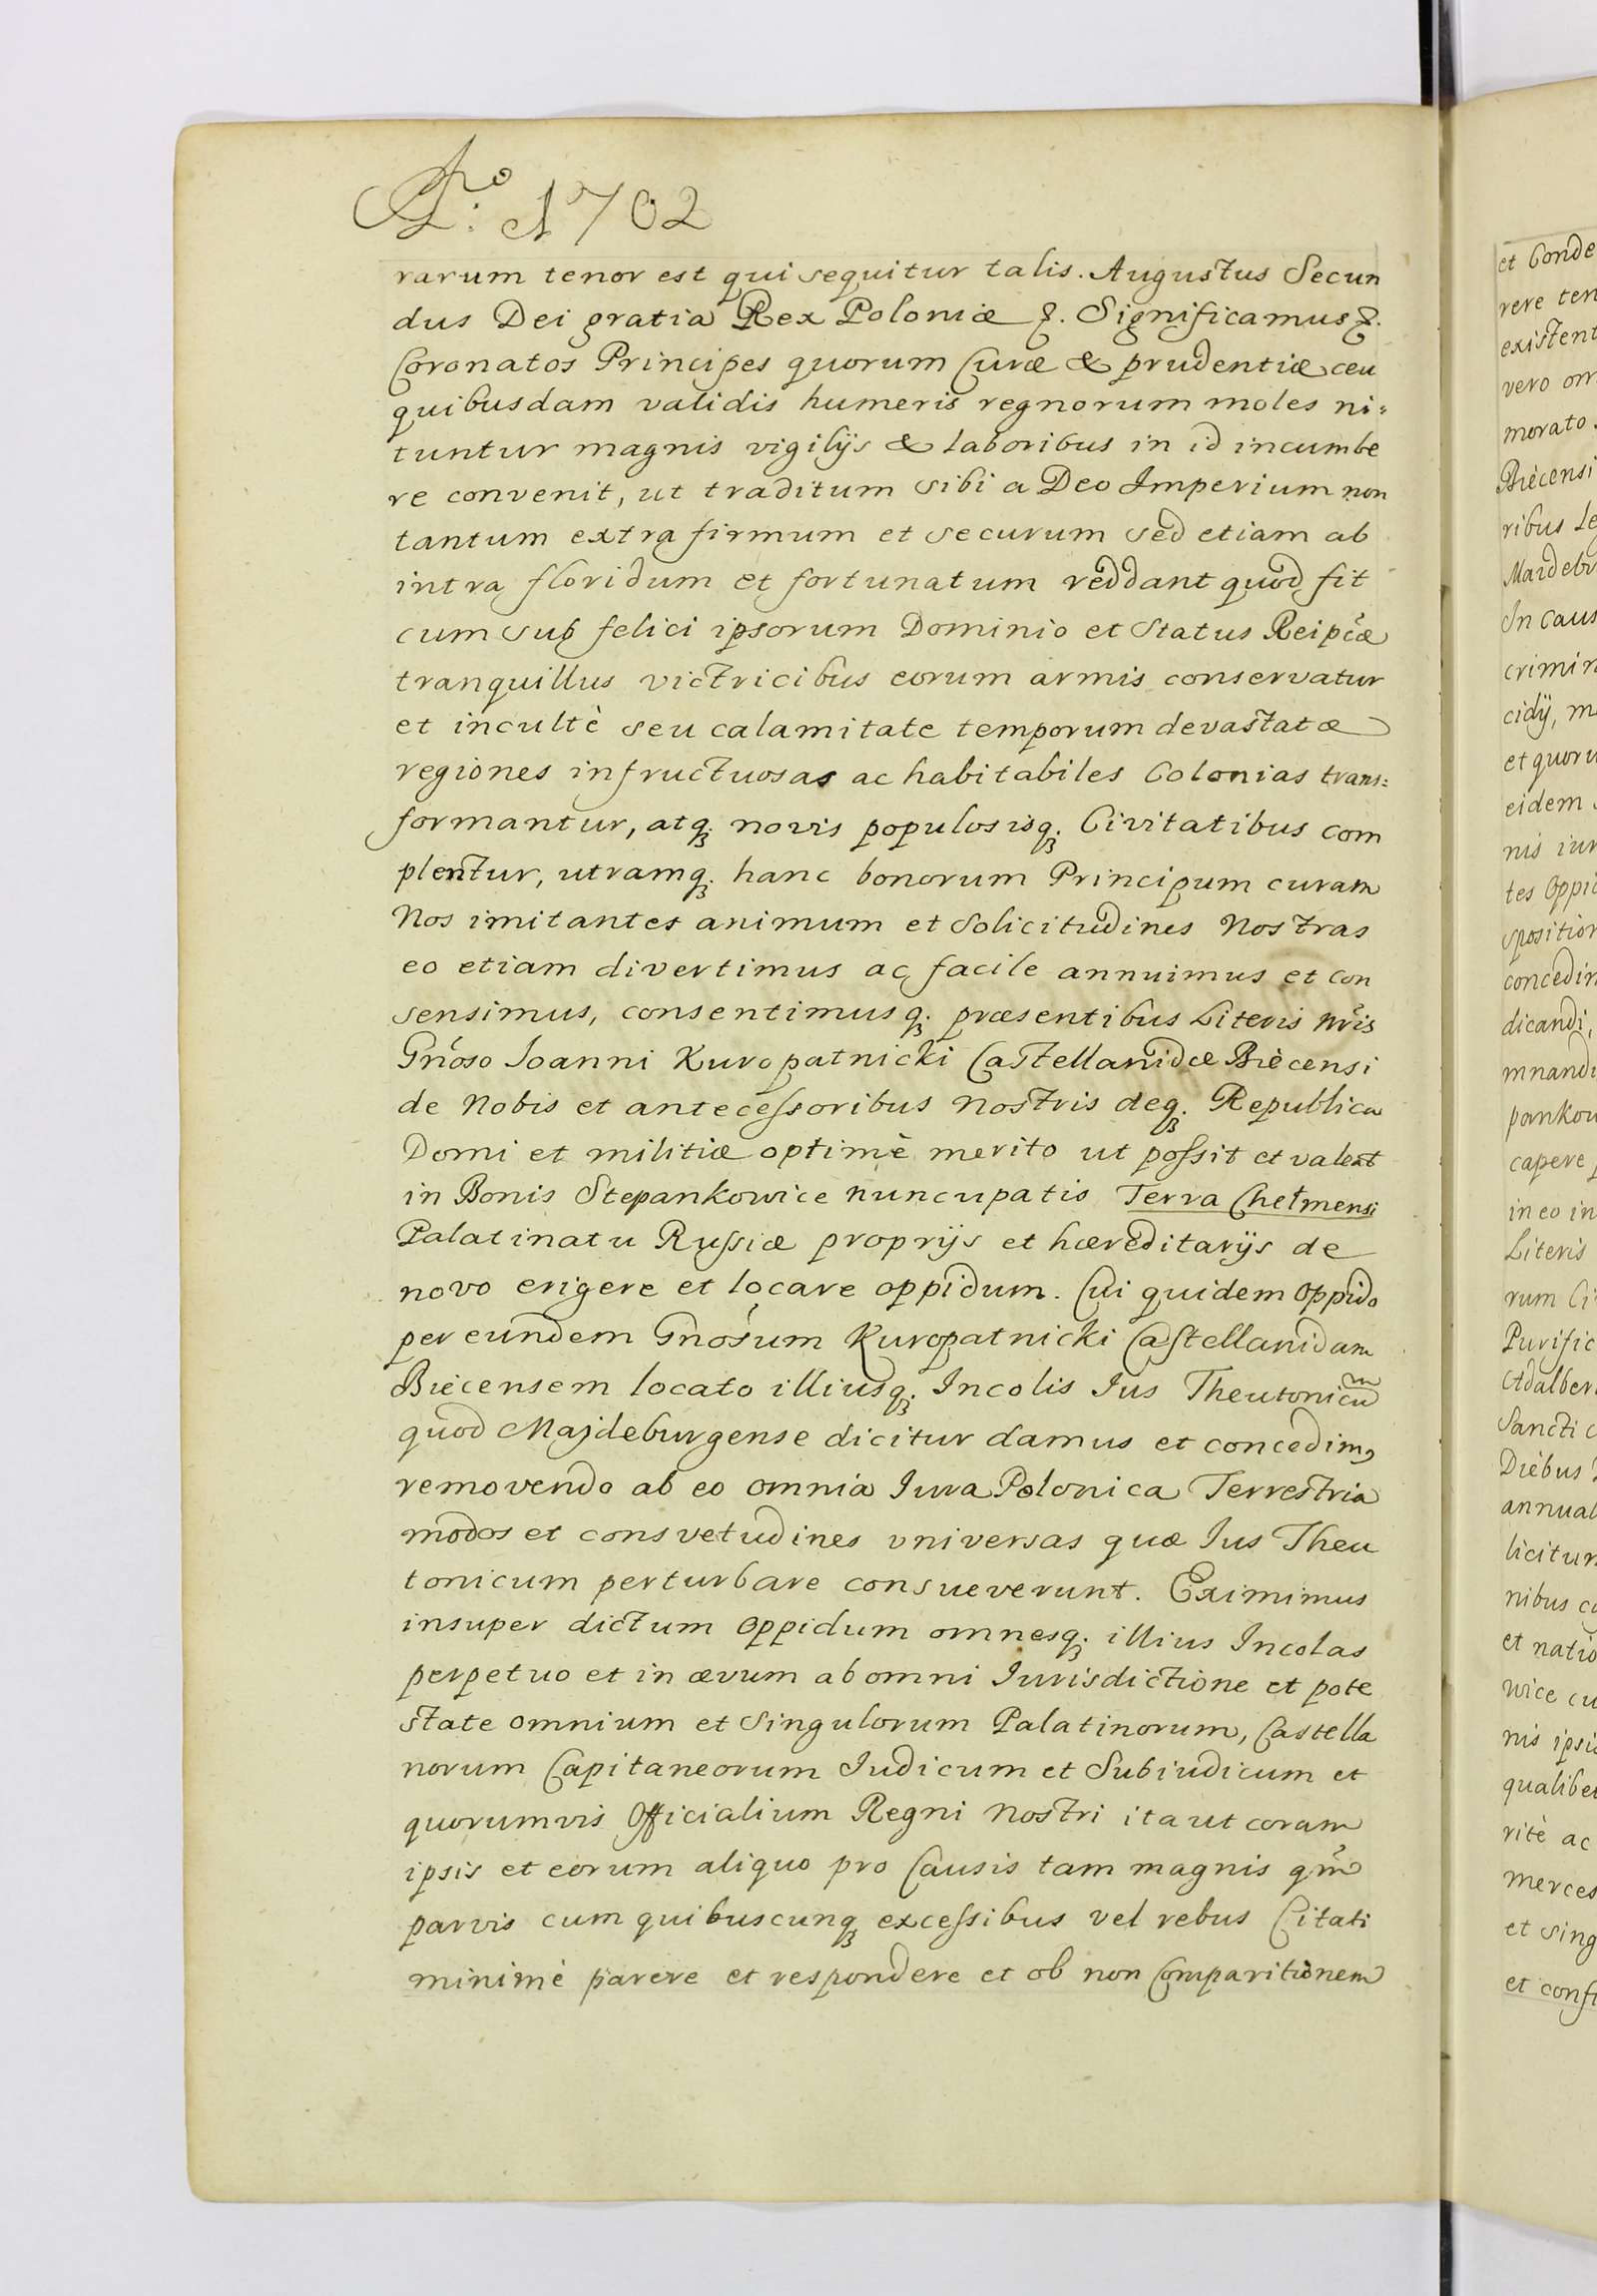 Aō: 1702
rarum tenor est qui sequitur talis. Augustus Secun
dus Dei gratia Rex Poloniæ &. Significamus &.
Coronatos Principes quorum Curæ & prudentiæ ceu
quibusdam validis humeris regnorum moles ni=
tuntur magnis vigilijs & laboribus in id incumbe
re convenit, ut traditum sibi a Deo Imperium non
tantum extra firmum et securum sed etiam ab
intra floridum et fortunatum reddant quod fit
cum sub felici ipsorum Dominio et Status Reipcæ
tranquillus victricibus eorum armis conservatur
et incultè seu calamitate temporum devastatæ
regiones infructuosas ac habitabiles Colonias trans=
formantur, atq. novis populosisq. Civitatibus com
plentur, utramq. hanc bonorum Principum curam
Nos imitantes animum et Solicitudines Nostras
eo etiam divertimus ac facile annuimus et con
sensimus, consentimusq. præsentibus Literis nris
Gnoso Ioanni Kuropatnicki Castellanidæ Biècensi
de Nobis et antecessoribus Nostris deq. Republica
Domi et militiæ optimè merito ut possit et valeat
in Bonis Stepankowice nuncupatis Terra Chełmensi
Palatinatu Russiæ proprijs et hæreditarijs de
novo erigere et locare oppidum. Cui quidem Oppido
per eundem Gnosum Kuropatnicki Castellanidam
Biècensem locato illiusq. Incolis Ius Theutonicũ
quod Majdeburgense dicitur damus et concedim9
removendo ab eo omnia Iura Polonica Terrestria
modos et consvetudines vniversas quæ Ius Theu
tonicum perturbare consueverunt. Eximimus
insuper dictum Oppidum omnesq. illius Incolas
perpetuo et in ævum ab omni Iurisdictione et pote
state omnium et Singulorum Palatinorum, Castella
norum Capitaneorum Iudicum et Subiudicum et
quorumvis Officialium Regni Nostri ita ut coram
ipsis et eorum aliquo pro Causis tam magnis qm
parvis cum quibuscunq excessibus vel rebus Citati
minimè parere et respondere et ob non Comparitionem
et Conde
rere ten
existent
vero om
morato
Biècensi
ribus Le
Maidebu
In Caus
crimin
cidij, m
et quoru
eidem
nis iur
tes Oppid
sposition
concedim
dicandi,
mnandi
pankow
capere p
in eo in
Literis
rum Ci
Purific
Adalber
Sancti
Dièbus
annual
licitum
nibus co
et natio
wice cu
nis ipsi
qualibet
ritè ac
merces
et sing
et confi